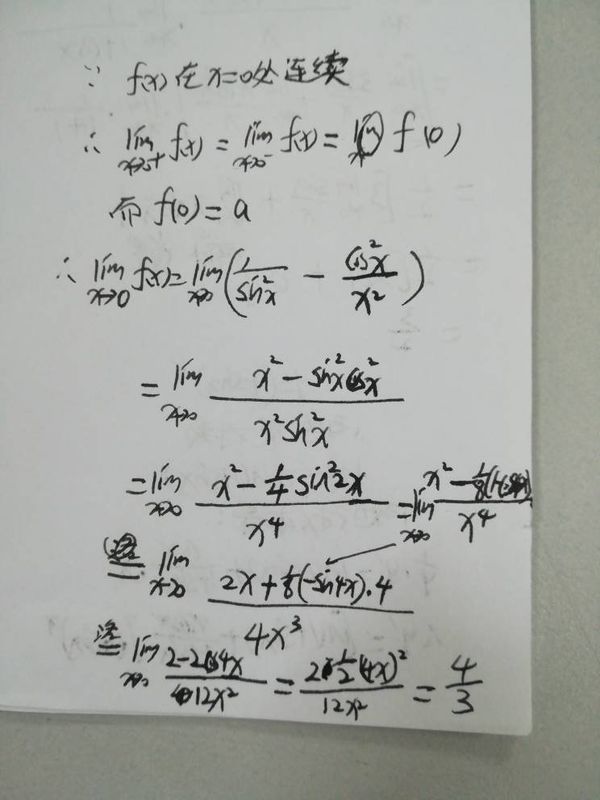 ∵ f(x) 在 x=0处连续
∴ lim x→0+ f(x) = lim x→0- f(x) = f(0)
而 f(0) = a
∴ lim x→0 f(x) = lim x→0 (1/sin²x - cos²x/x²)
= lim x→0 (x² - sin²x cos²x)/(x² sin²x)
= lim x→0 (x² - 1/4 sin²2x)/x⁴ = lim x→0 (x² - 1/8(1-cos4x))/x⁴
洛= lim x→0 (2x + 1/8(-sin4x)·4)/4x³
洛= lim x→0 (2-2cos4x)/12x² = 2·1/2(4x)²/12x² = 4/3